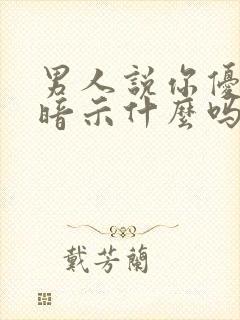 男人說你優
暗示什麼嗎
戴芳蘭